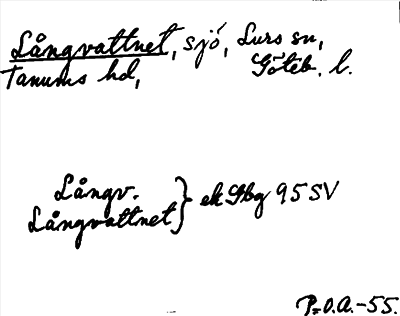 Långvattnet, sjö, Lurs sn,
Tanums hd, Göteb. l.
Långv. } ek Gbg 95 SV
Långvattnet
P.O.A.-55.